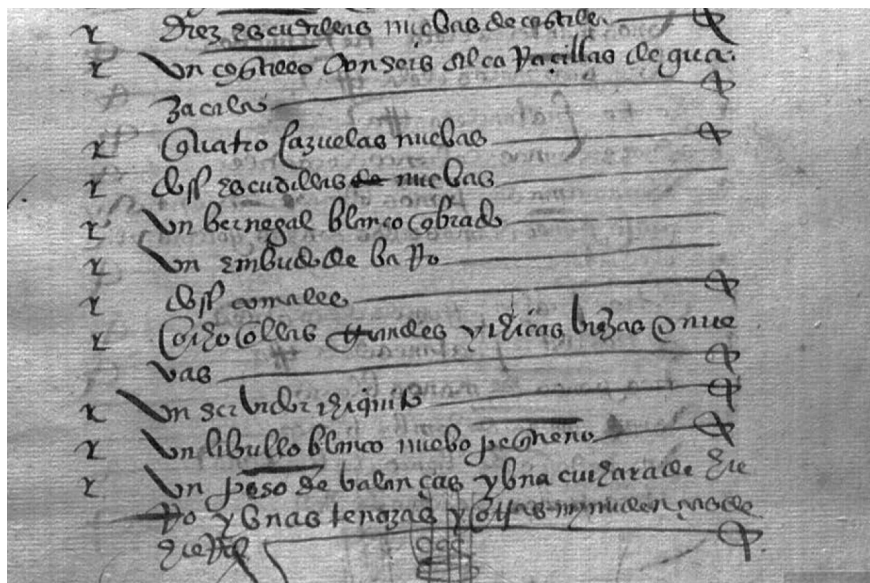 x Diez escudillas nuebas de castilla
x Un cestillo con seis alcataçillas de qua
x quatro cazuelas nuebas
x dos escudillas de nuebas
x Un bernegal blanco cobrado
x Un embudo de barro
x dos comales
x ocho ollas grandes y chicas biejas e nue
vas
x Un chiquito
x Un librillo blanco nuebo pequeño
x Un peso de balanças y una cuchara de hie
rro y unas tenazas y otras menudencias de
hierro